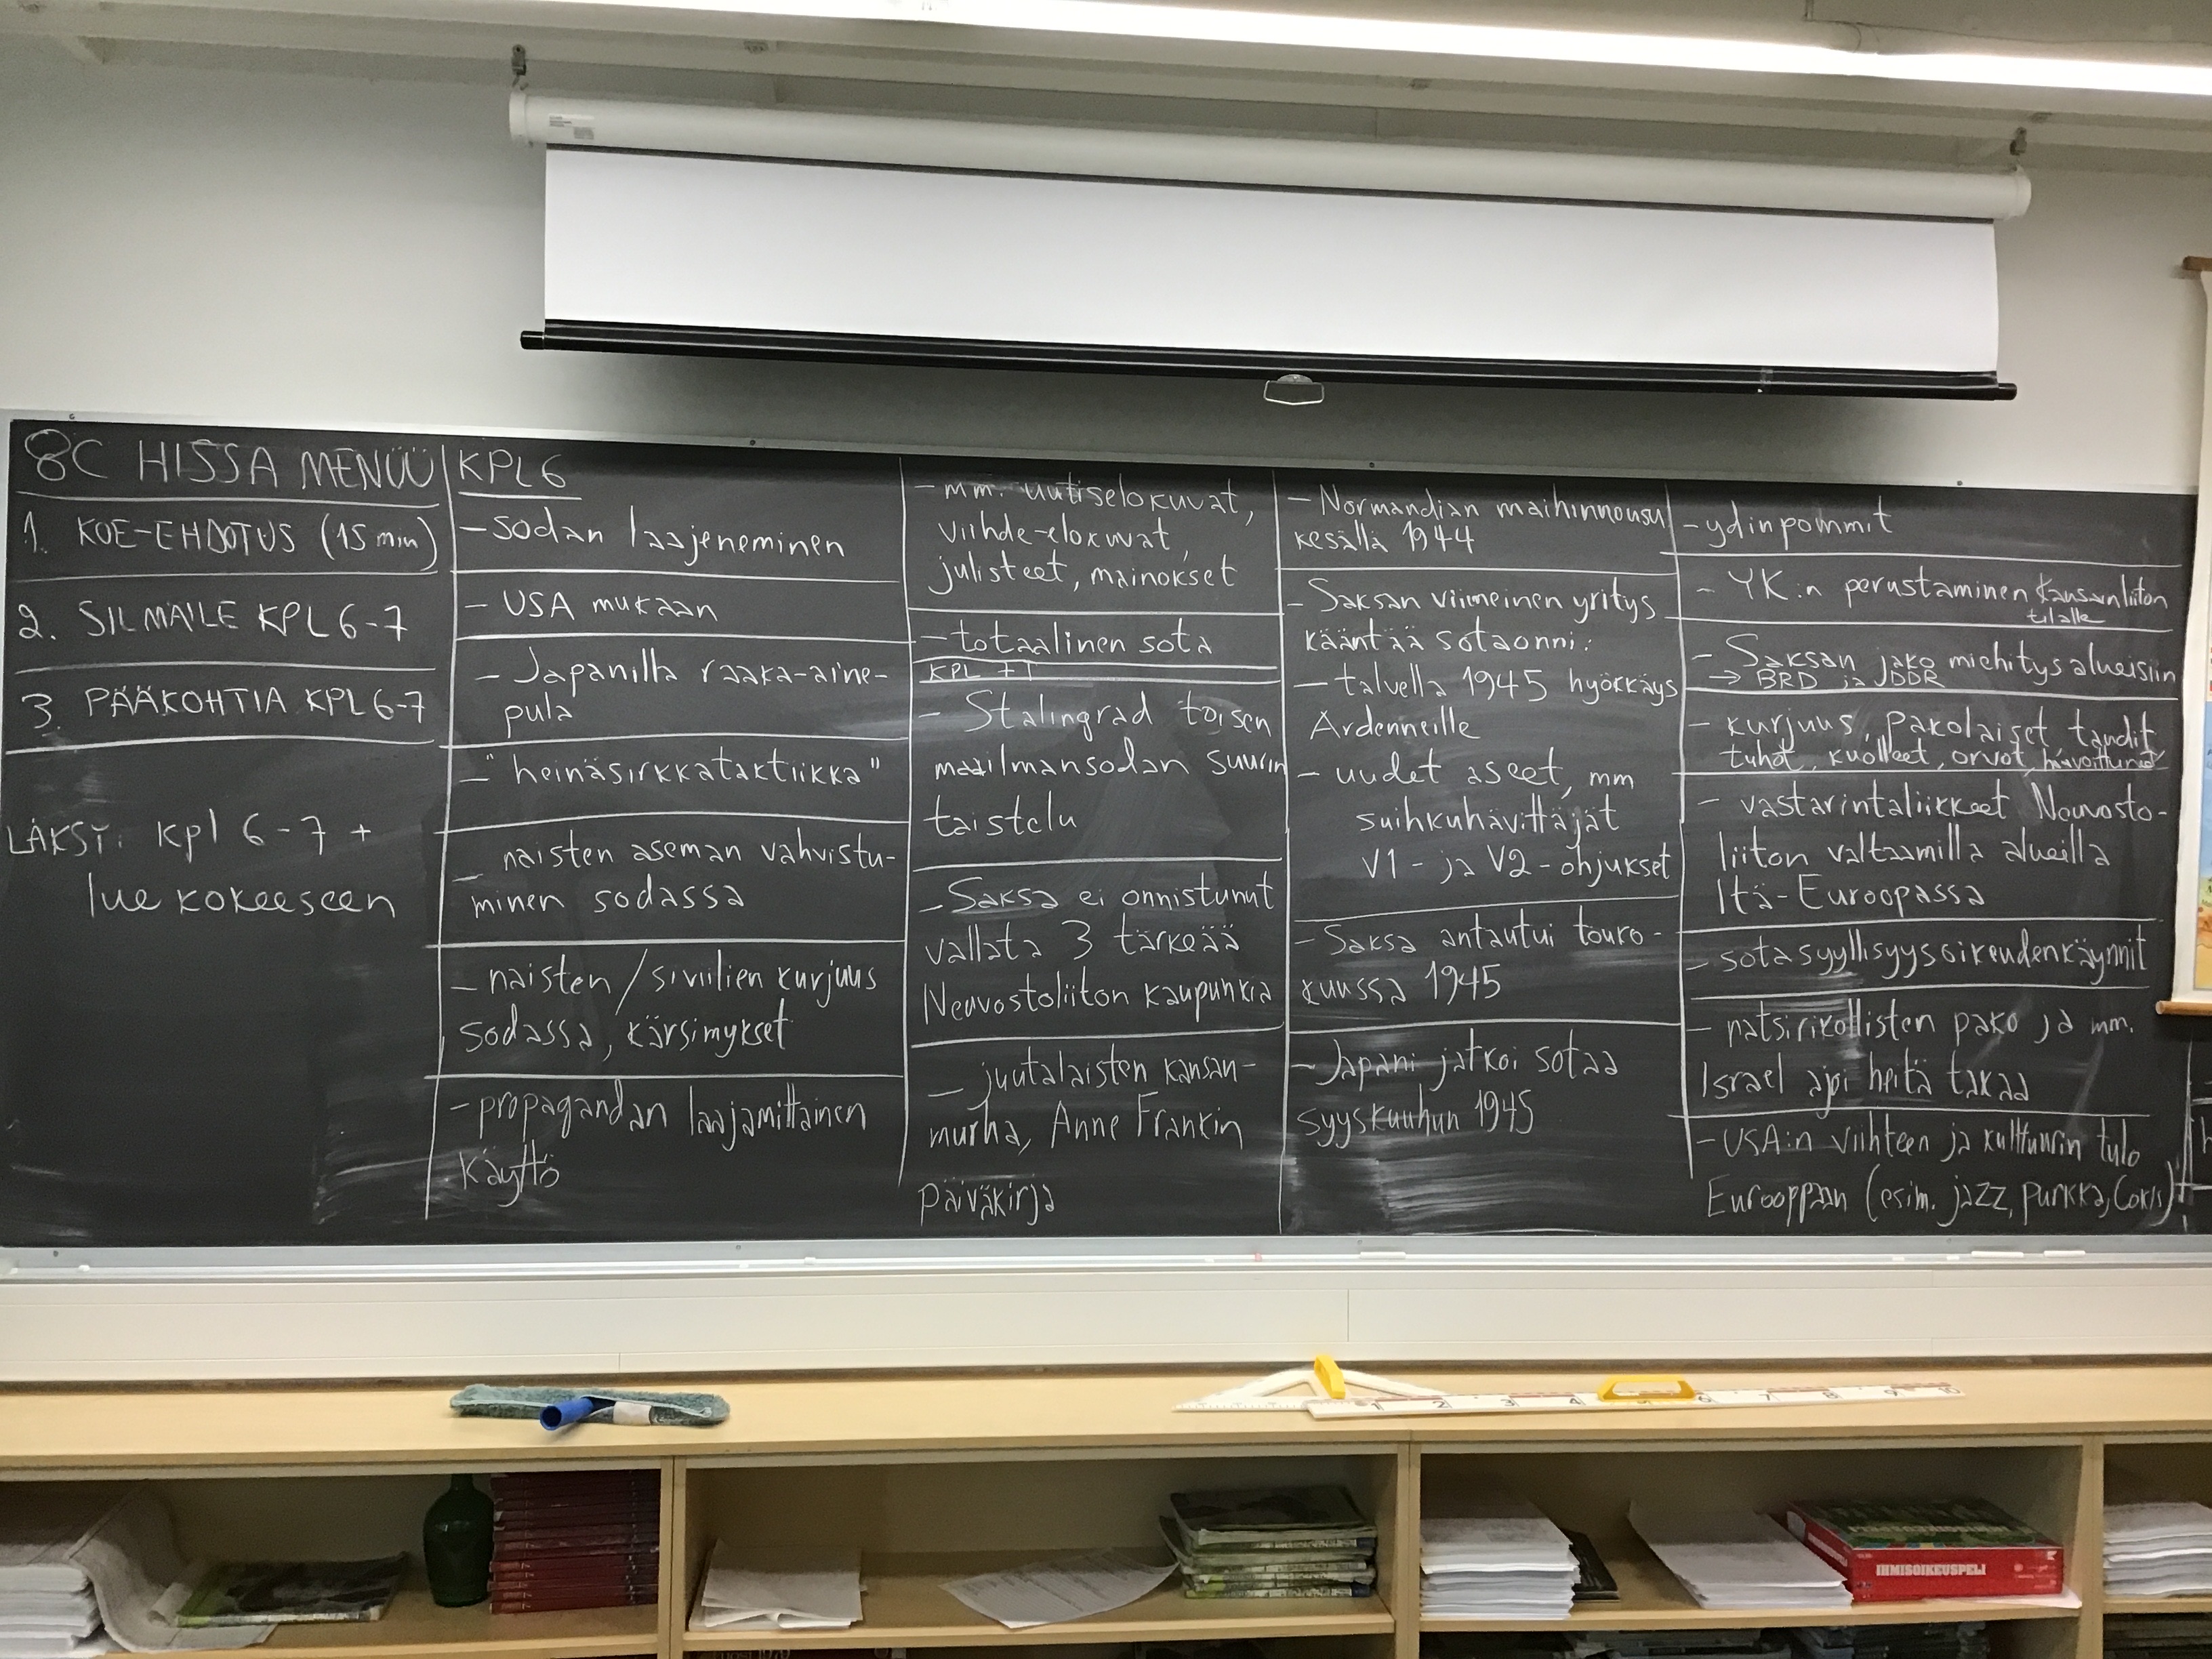 8C HISSA MENÜÜ
1. KOE-EHDOTUS (15 min)
2. SILMÄILE KPL 6-7
3. PÄÄKOHTIA KPL 6-7
LÄKSY: kpl 6-7 +
lue kokeeseen
KPL 6
- sodan laajeneminen
- USA mukaan
- Japanilla raaka-aine-
pula
- "heinäsirkkataktiikka"
- naisten aseman vahvistu-
minen sodassa
- naisten/siviilien kurjuus
sodassa, kärsimykset
- propagandan laajamittainen
käyttö
- mm. uutiselokuvat,
viihde-elokuvat,
julisteet, mainokset
- totaalinen sota
KPL 7
- Stalingrad toisen
maailmansodan suurin
taistelu
- Saksa ei onnistunut
vallata 3 tärkeää
Neuvostoliiton kaupunkia
- juutalaisten kansan-
murha, Anne Frankin
päiväkirja
- Normandian maihinnousu
kesällä 1944
- Saksan viimeinen yritys
kääntää sotaonni:
- talvella 1945 hyökkäys
Ardenneille
- uudet aseet, mm
suihkuhävittäjät
V1- ja V2-ohjukset
- Saksa antautui touko-
kuussa 1945
- Japani jatkoi sotaa
syyskuuhun 1945
- ydinpommit
- YK:n perustaminen Kansainliiton
tilalle
- Saksan jako miehitysalueisiin
→ BRD ja DDR
- kurjuus, pakolaiset, taudit
tuhot, kuolleet, orvot, haavoittuneet
- vastarintaliikkeet Neuvosto-
liiton valtaamilla alueilla
Itä-Euroopassa
- sotasyyllisyysoikeudenkäynnit
- natsirikollisten pako ja mm.
Israel ajoi heitä takaa
- USA:n viihteen ja kulttuurin tulo
Eurooppaan (esim. jazz, purkka, Cokis)
1 2 3 4 5 6 7 8 9 10
IHMISOIKEUSPELI